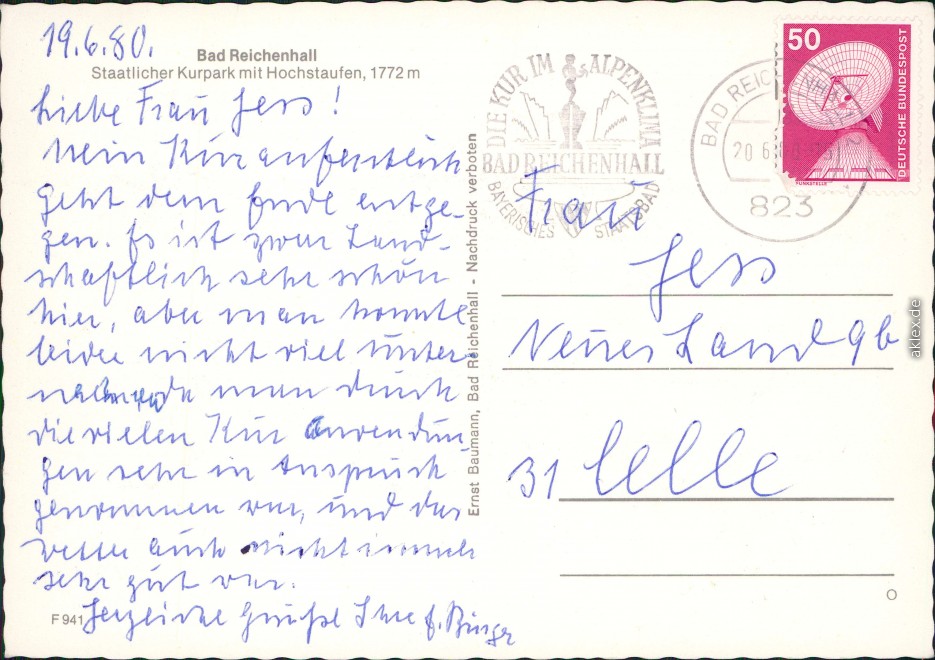 19.6.80.
Bad Reichenhall
Staatlicher Kurpark mit Hochstaufen, 1772 m
Liebe Frau Jess!
Mein Kuraufenthalt
geht dem Ende entge-
gen. Es ist zwar Land-
schaftlich sehr schön
hier, aber man konnte
leider nicht viel unter
nehmen da man durch
die vielen Kur Anwendun
gen sehr in Anspruch
genommen war, und das
Wetter auch nicht immer
sehr gut war.
Herzliche Grüße Ihre
F 941
Ernst Baumann, Bad Reichenhall - Nachdruck verboten
DIE KUR IM ALPENKLIMA
BAD REICHENHALL
BAYERISCHES STAATSBAD
BAD REICHENHALL
20.6.80
823
50
DEUTSCHE BUNDESPOST
Frau
Jess
Neues Land 9b
31 Celle
aklex.de